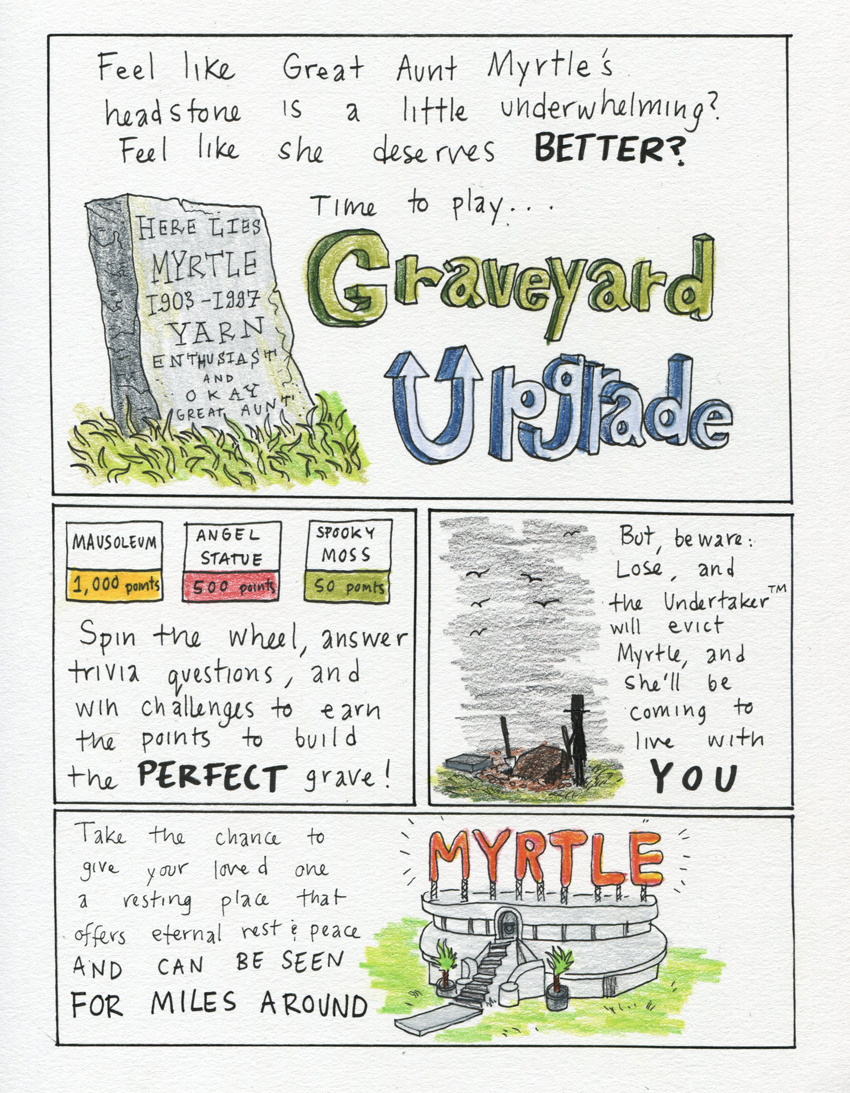 Feel like Great Aunt Myrtle's
headstone is a little underwhelming?
Feel like she deserves BETTER?
Time to play...
HERE LIES
MYRTLE
1903-1997
YARN
ENTHUSIAST
AND
OKAY
GREAT AUNT
Graveyard
Upgrade
MAUSOLEUM
1,000 points
ANGEL
STATUE
500 points
SPOOKY
MOSS
50 points
Spin the wheel, answer
trivia questions, and
win challenges to earn
the points to build
the PERFECT grave!
But, beware:
Lose, and
the Undertaker™
will evict
Myrtle, and
she'll be
coming to
live with
YOU
Take the chance to
give your loved one
a resting place that
offers eternal rest & peace
AND CAN BE SEEN
FOR MILES AROUND
MYRTLE